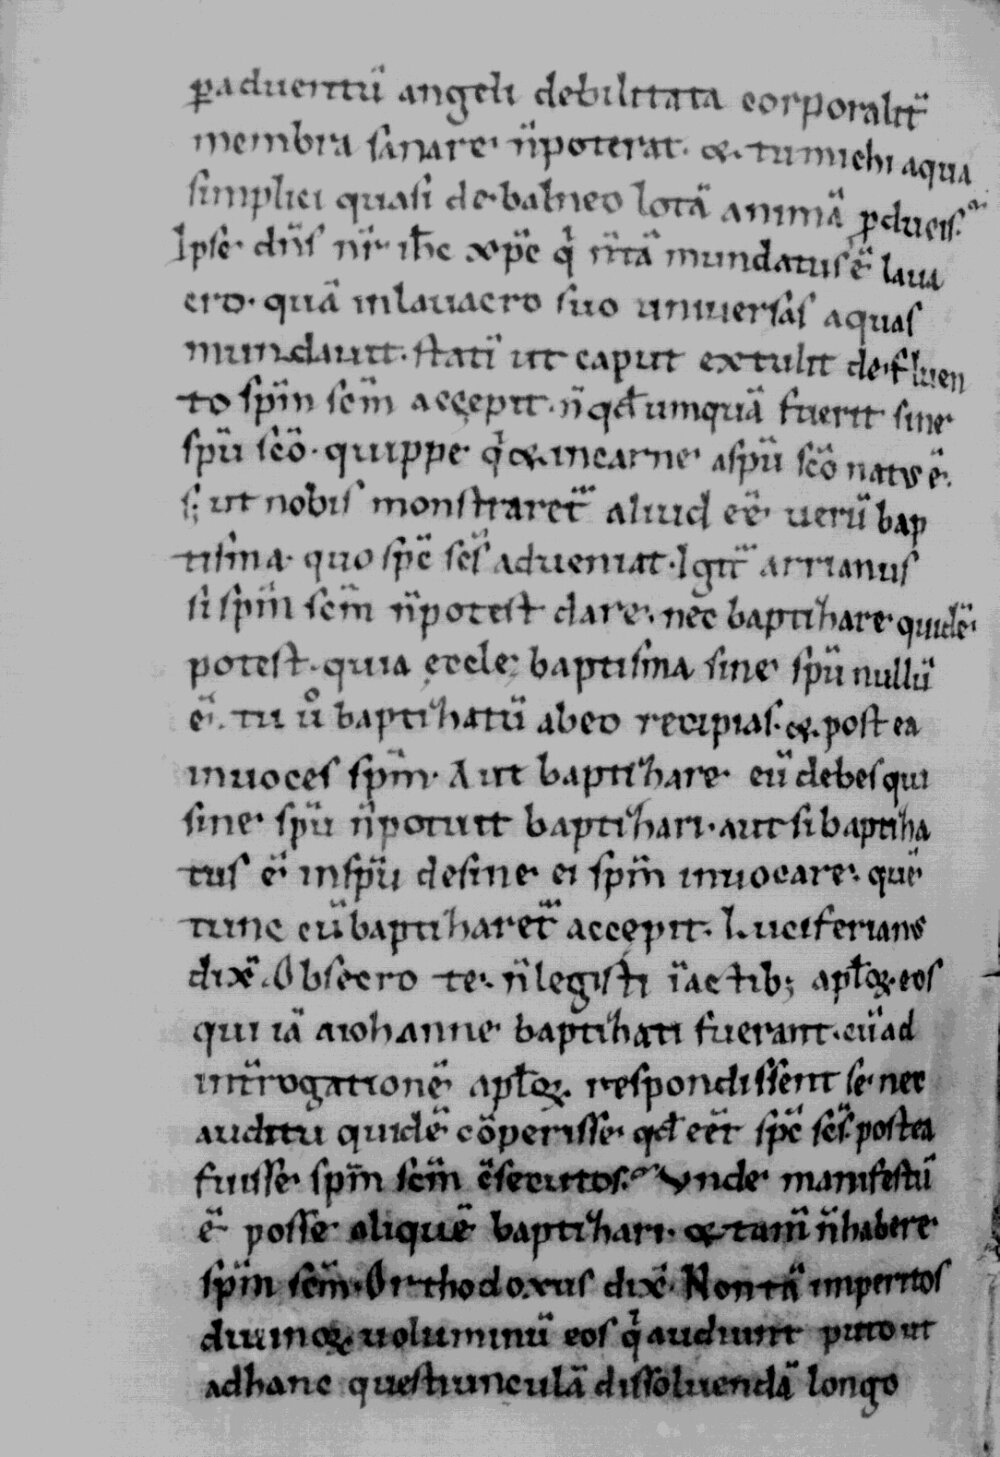 ꝑaduentū angeli debilitata corporalit̄
membra sanare n̄poterat. &. tu michi aqua
simplici quasi de balneo lotā animā ꝓducis.
Ipse dn̄s nr̄ ih̄c xp̄c q̇ n̄tā mundatus ē laua
cro. quā inlauacro suo uniuersas aquas
mundauit. statī ut caput extulit de fluen
to sp̄m sc̄m accepit. n̄ qd̄ umquā fuerit sine
sp̄u sc̄o. quippe q̇ &. incarne asp̄u sc̄o natus ē.
s; ut nobis monstraret̄ aliud eē uerū bap
tisma. quo sp̄c sc̄s adueniat. Igit̄ arrianus
si sp̄m sc̄m n̄potest dare. nec baptihare quidē
potest. quia ęccle baptisma sine sp̄u nullū
ē. tu ů baptihatū abeo recipias. &. post ea
inuoces sp̄m. Aut baptihare eū debes qui
sine sp̄u n̄potuit baptihari. aut si baptiha
tus ē insp̄u desine ei sp̄m inuocare. quē
tunc cū baptiharet̄ accępit. Luciferianus
dix̄. Obsecro te. n̄legisti īactib; apl̄oꝝ. eos
qui iā aiohanne baptihati fuerant. cū ad
int̄rogationē apl̄oꝝ. respondissent se nec
auditu quidē cōperisse qd̄ eēt sp̄c sc̄s. postea
fuisse sp̄m sc̄m c̄secutos. Vnde manifestū
ē posse aliquē baptihari. & tam̄ n̄habere
sp̄m sc̄m. Orthodoxus dix̄. Non tā imperitos
diuinoꝝ uoluminū eos q̇ audiunt puto ut
adhanc questiunculā dissoluendā longo